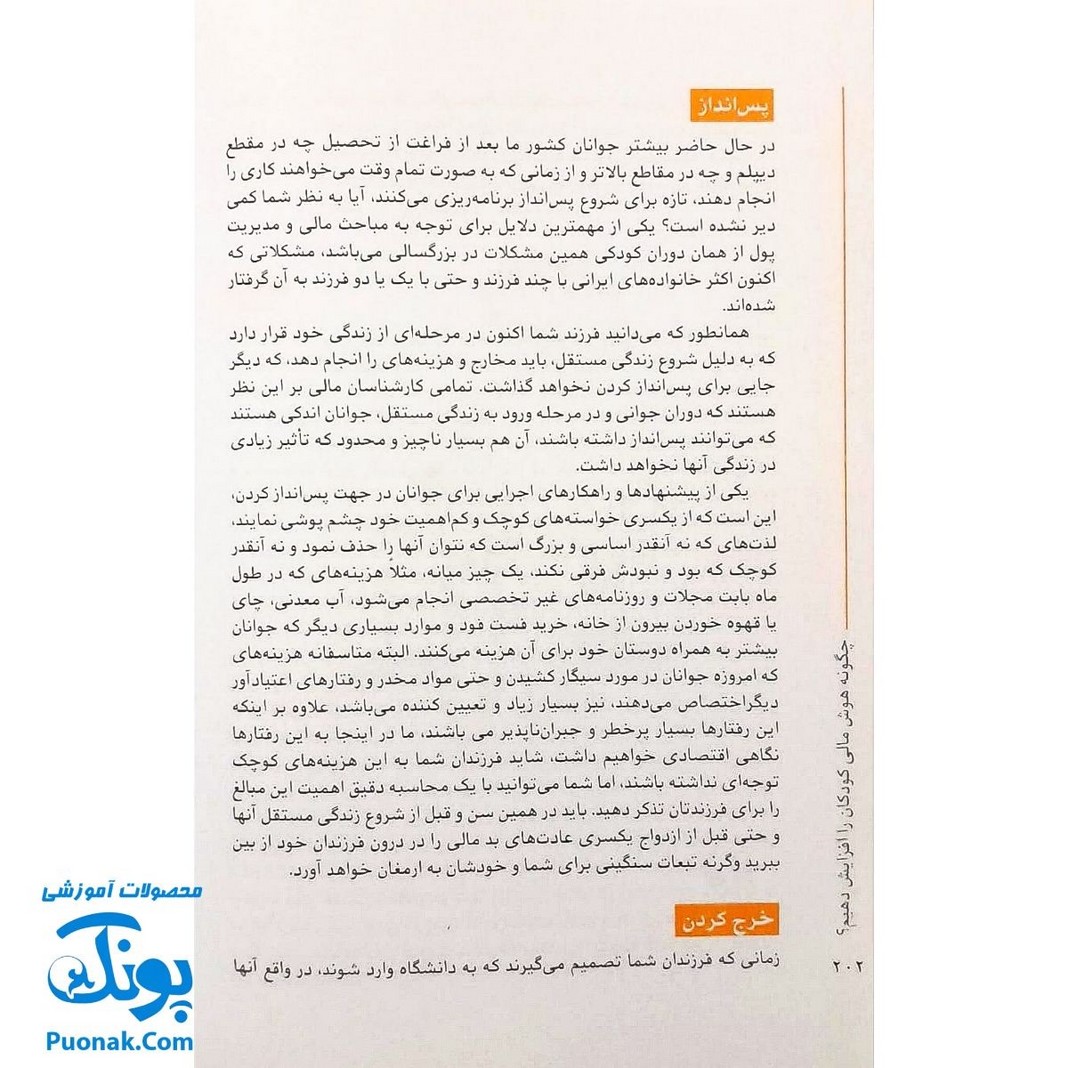 پس‌انداز
در حال حاضر بیشتر جوانان کشور ما بعد از فراغت از تحصیل چه در مقطع
دیپلم و چه در مقاطع بالاتر و از زمانی که به صورت تمام وقت می‌خواهند کاری را
انجام دهند، تازه برای شروع پس‌انداز برنامه‌ریزی می‌کنند، آیا به نظر شما کمی
دیر نشده است؟ یکی از مهمترین دلایل برای توجه به مباحث مالی و مدیریت
پول از همان دوران کودکی همین مشکلات در بزرگسالی می‌باشد، مشکلاتی که
اکنون اکثر خانواده‌های ایرانی با چند فرزند و حتی با یک یا دو فرزند به آن گرفتار
شده‌اند.
همانطور که می‌دانید فرزند شما اکنون در مرحله‌ای از زندگی خود قرار دارد
که به دلیل شروع زندگی مستقل، باید مخارج و هزینه‌های را انجام دهد، که دیگر
جایی برای پس‌انداز کردن نخواهد گذاشت. تمامی کارشناسان مالی بر این نظر
هستند که دوران جوانی و در مرحله ورود به زندگی مستقل، جوانان اندکی هستند
که می‌توانند پس‌انداز داشته باشند، آن هم بسیار ناچیز و محدود که تأثیر زیادی
در زندگی آنها نخواهد داشت.
یکی از پیشنهادها و راهکارهای اجرایی برای جوانان در جهت پس‌انداز کردن،
این است که از یکسری خواسته‌های کوچک و کم‌اهمیت خود چشم پوشی نمایند،
لذت‌های که نه آنقدر اساسی و بزرگ است که نتوان آنها را حذف نمود و نه آنقدر
کوچک که بود و نبودش فرقی نکند، یک چیز میانه، مثلاً هزینه‌های که در طول
ماه بابت مجلات و روزنامه‌های غیر تخصصی انجام می‌شود، آب معدنی، چای
یا قهوه خوردن بیرون از خانه، خرید فست فود و موارد بسیاری دیگر که جوانان
بیشتر به همراه دوستان خود برای آن هزینه می‌کنند. البته متاسفانه هزینه‌های
که امروزه جوانان در مورد سیگار کشیدن و حتی مواد مخدر و رفتارهای اعتیادآور
دیگراختصاص می‌دهند، نیز بسیار زیاد و تعیین کننده می‌باشد، علاوه بر اینکه
این رفتارها بسیار پرخطر و جبران‌ناپذیر می باشند، ما در اینجا به این رفتارها
نگاهی اقتصادی خواهیم داشت، شاید فرزندان شما به این هزینه‌های کوچک
توجه‌ای نداشته باشند، اما شما می‌توانید با یک محاسبه دقیق اهمیت این مبالغ
را برای فرزندتان تذکر دهید. باید در همین سن و قبل از شروع زندگی مستقل آنها
و حتی قبل از ازدواج یکسری عادت‌های بد مالی را در درون فرزندان خود از بین
ببرید وگرنه تبعات سنگینی برای شما و خودشان به ارمغان خواهد آورد.
خرج کردن
زمانی که فرزندان شما تصمیم می‌گیرند که به دانشگاه وارد شوند، در واقع آنها
چگونه هوش مالی کودکان را افزایش دهیم؟
۲۰۲
محصولات آموزشی
پونک
Puonak.Com